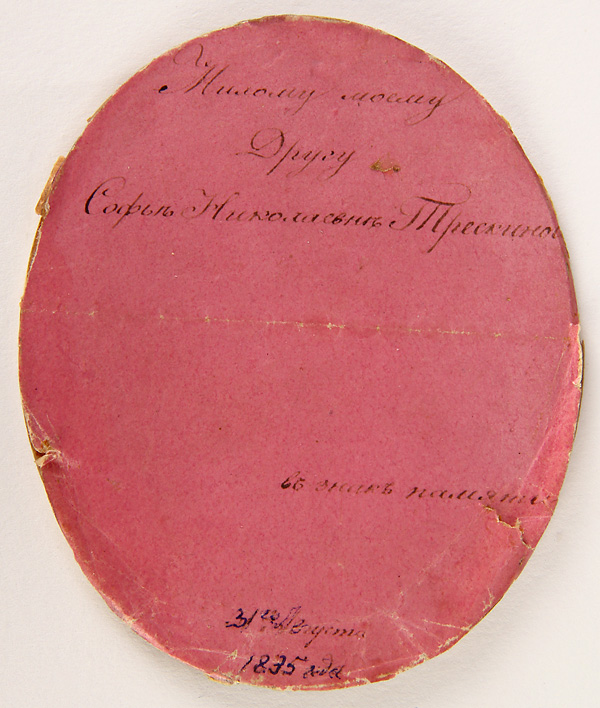 Милому моему
Другу
Софьѣ Николаевнѣ Трескиной
въ знакъ памяти
31го Августа
1835 года